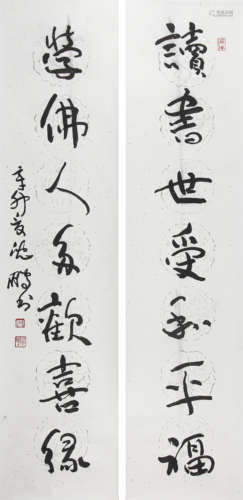 讀書世受和平福
學佛人多歡喜緣
辛卯夏沈鵬書